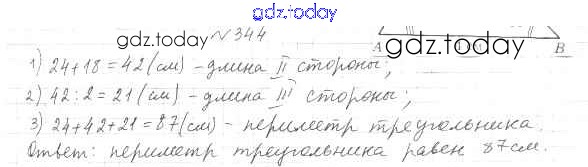 gdz.today
gdz.today №344
A gdz.today B
1) 24+18=42(см) - длина II стороны;
2) 42:2=21(см) - длина III стороны;
3) 24+42+21=87(см) - периметр треугольника.
Ответ: периметр треугольника равен 87см.